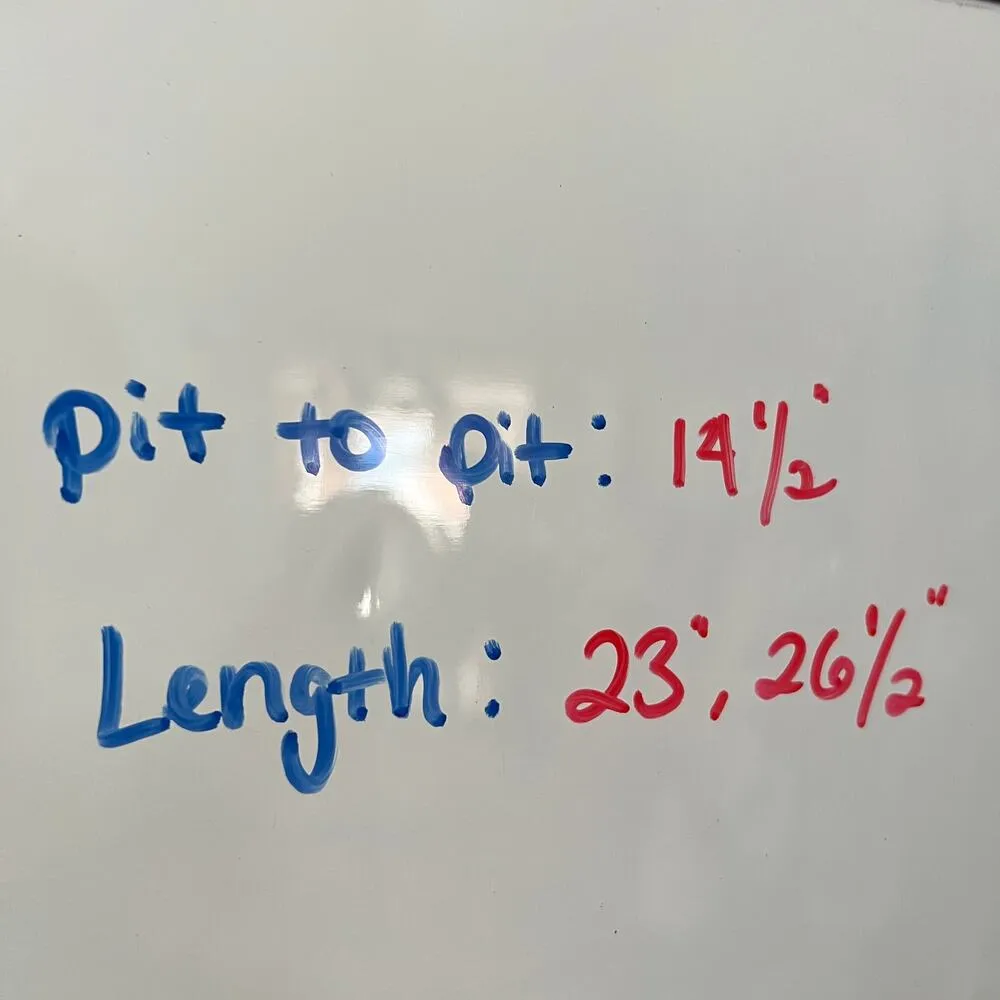 Pit to pit: 14 1/2"
Length: 23", 26 1/2"